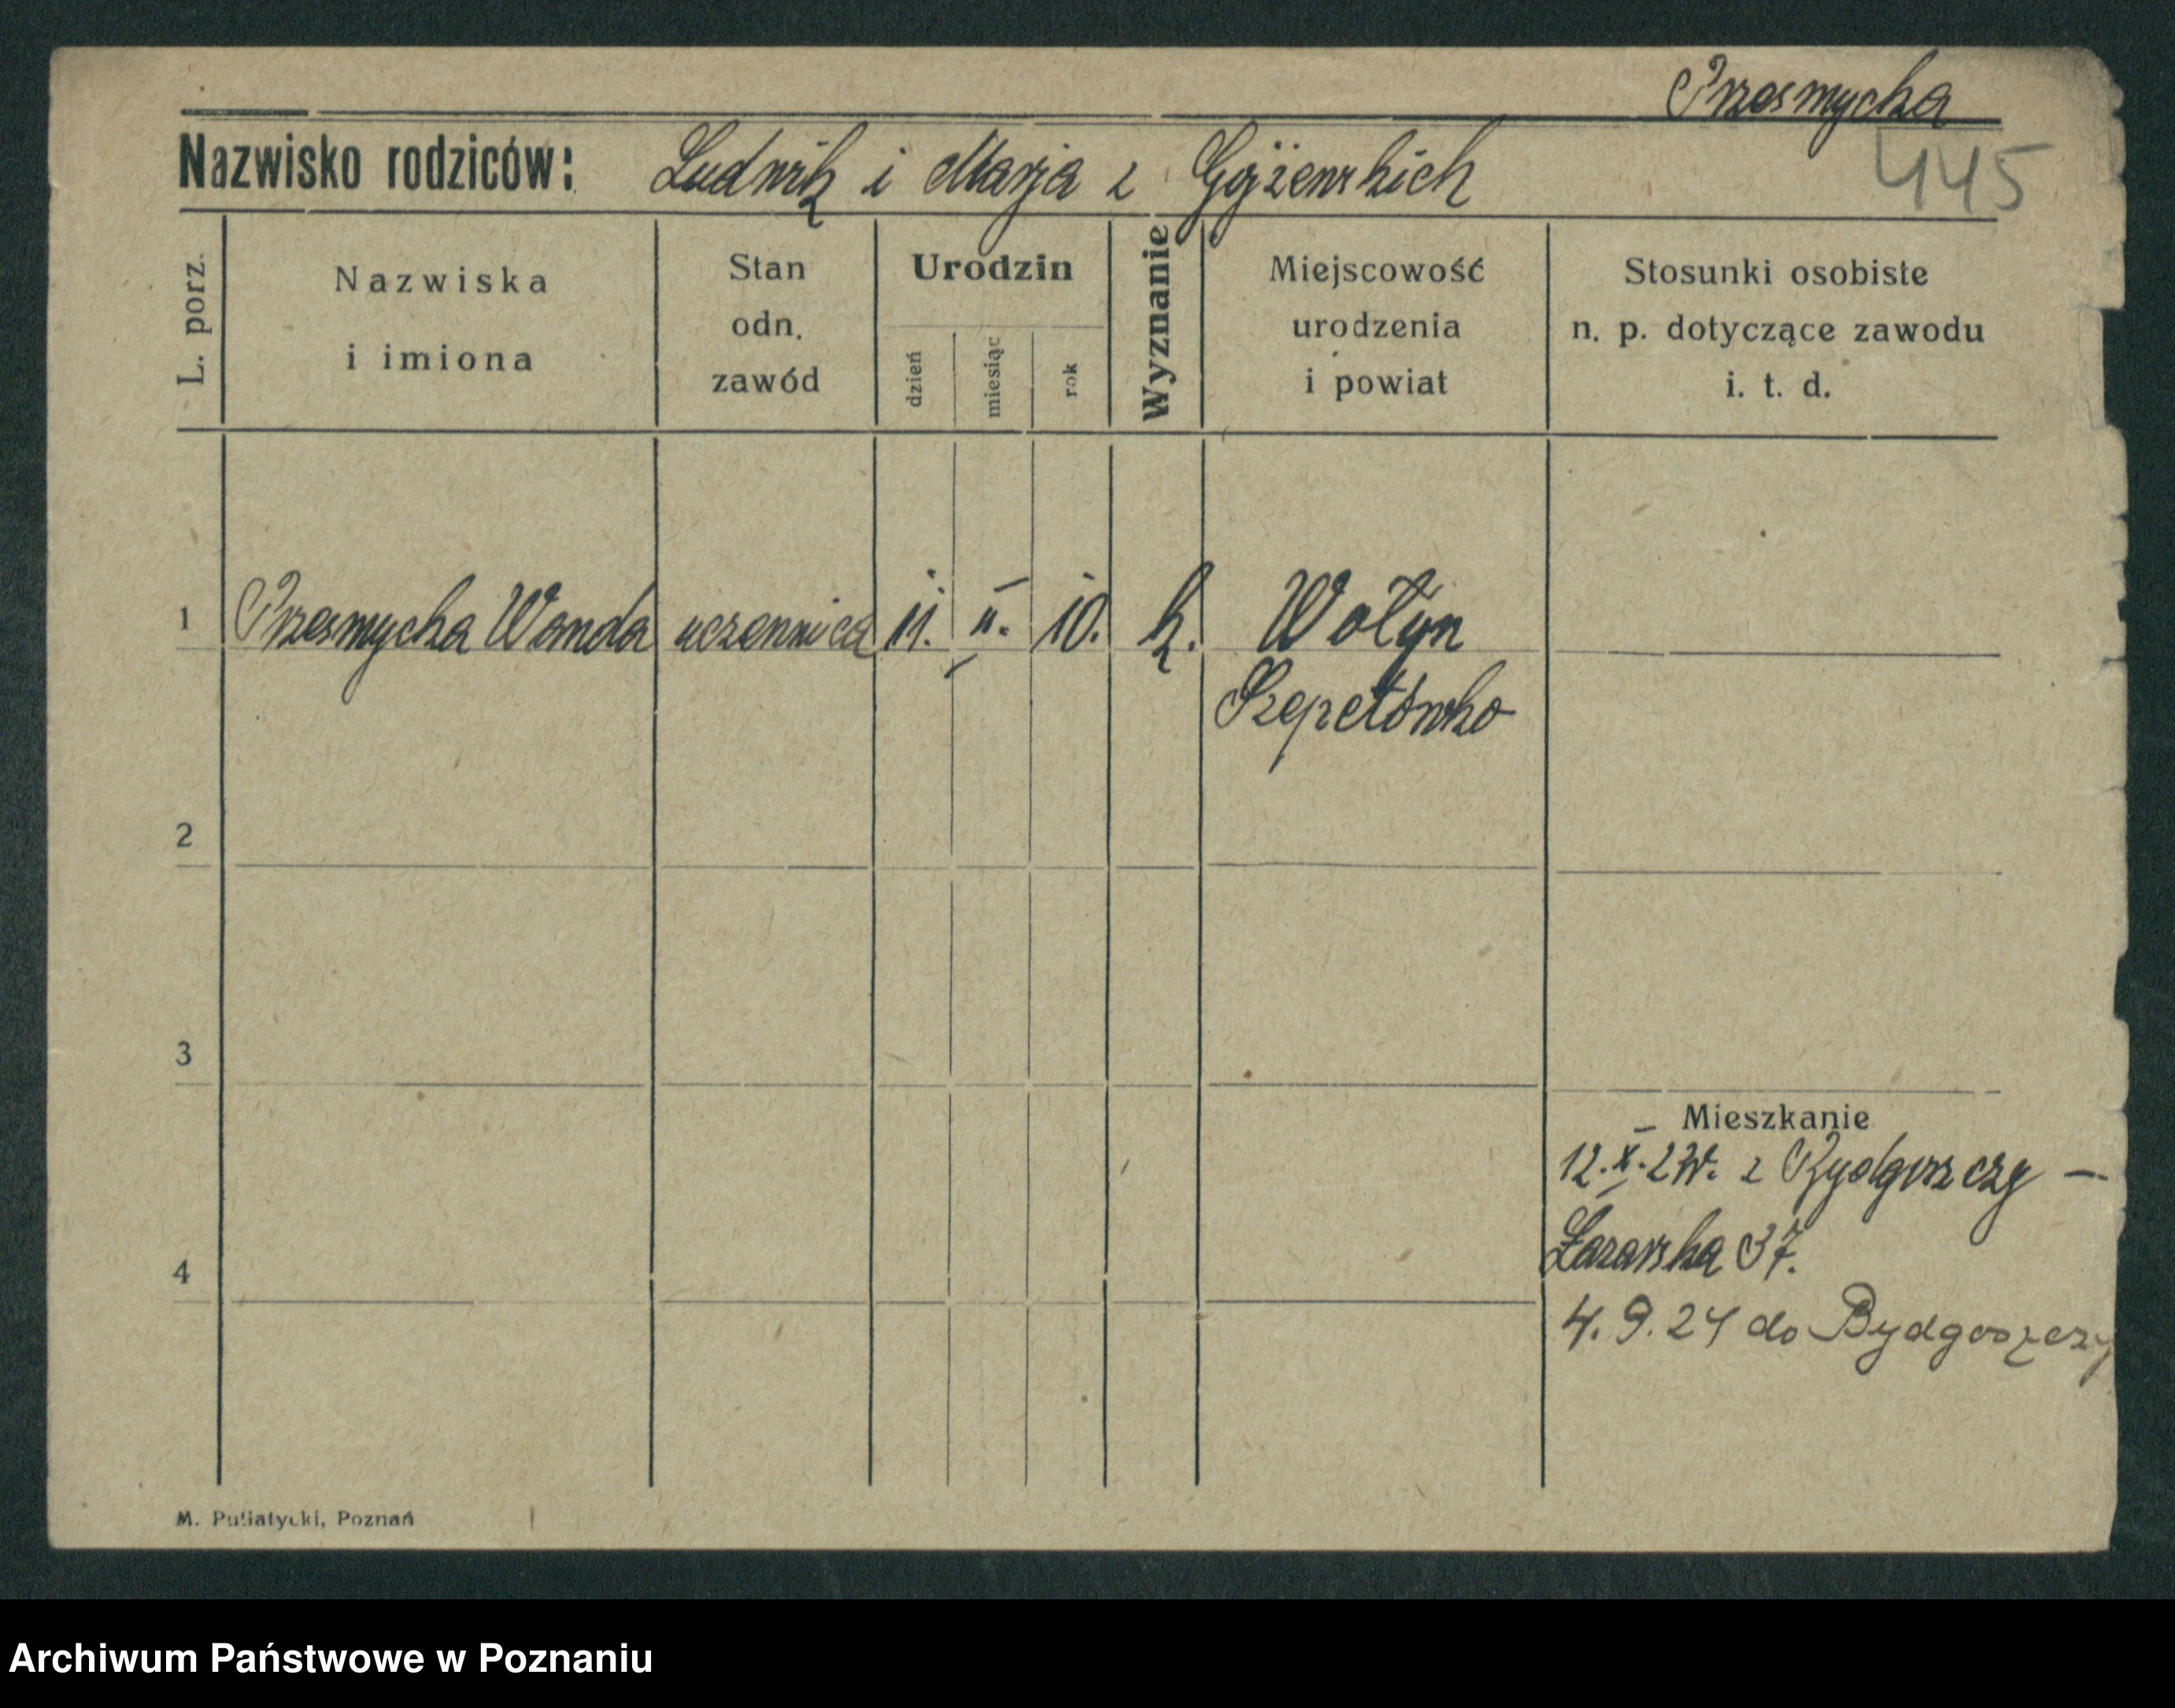 Przesmycka
Nazwisko rodziców: Ludwik i Marja z
445
L. porz.
Nazwiska
i imiona
Stan
odn.
zawód
Urodzin
dzień
miesiąc
rok
Wyznanie
Miejscowość
urodzenia
i powiat
Stosunki osobiste
n. p. dotyczące zawodu
i. t. d.
1 Przesmycka Wanda uczennica 11. II. 10. k. Wołyn
Szepetówko
2
3
4
Mieszkanie
12.X. z Bydgoszczy —
Łazarska 37.
4.9.24 do Bydgoszczy
M. Putiatycki, Poznań
Archiwum Państwowe w Poznaniu